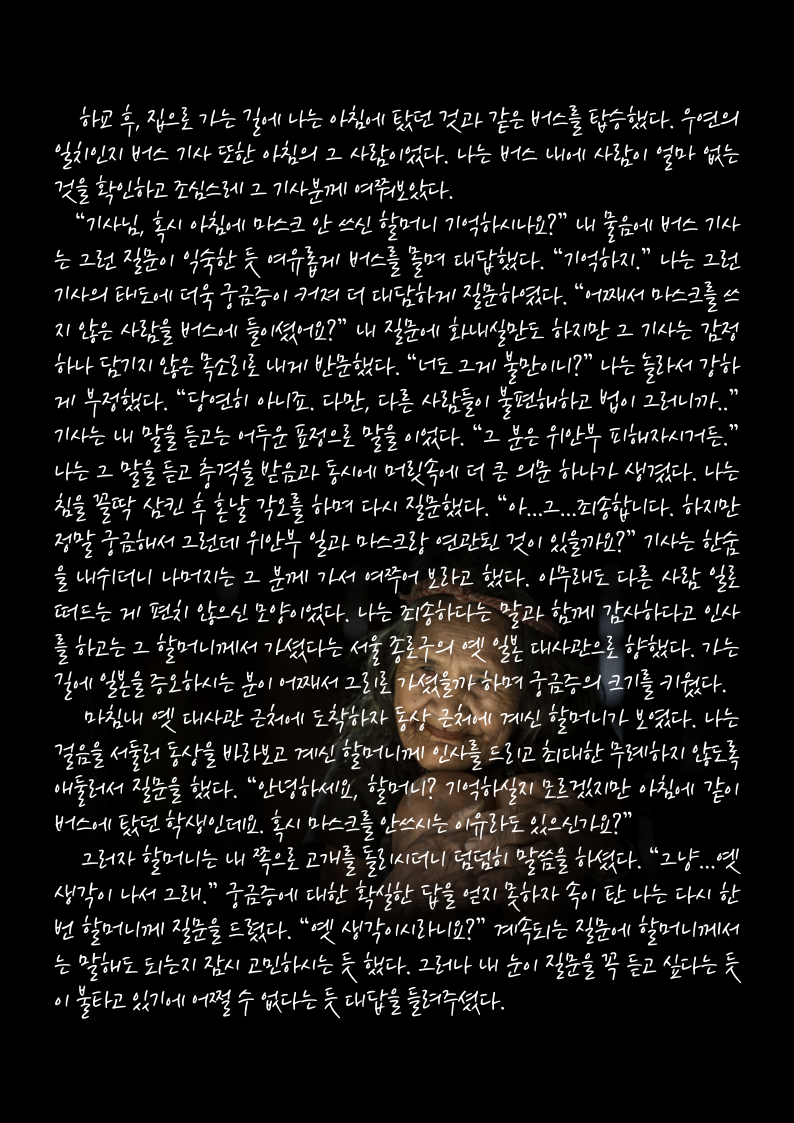 하교 후, 집으로 가는 길에 나는 아침에 탔던 것과 같은 버스를 탑승했다. 우연의
일치인지 버스 기사 또한 아침의 그 사람이었다. 나는 버스 내에 사람이 얼마 없는
것을 확인하고 조심스레 그 기사분께 여쭈보았다.
“기사님, 혹시 아침에 마스크 안 쓰신 할머니 기억하시나요?” 내 물음에 버스 기사
는 그런 질문이 익숙한 듯 여유롭게 버스를 몰며 대답했다. “기억하지.” 나는 그런
기사의 태도에 더욱 궁금증이 커져 더 대담하게 질문하였다. “어째서 마스크를 쓰
지 않은 사람을 버스에 들이셨어요?” 내 질문에 화내실만도 하지만 그 기사는 감정
하나 담기지 않은 목소리로 내게 반문했다. “너도 그게 불만이니?” 나는 놀라서 강하
게 부정했다. “당연히 아니죠. 다만, 다른 사람들이 불편해하고 법이 그러니까..”
기사는 내 말을 듣고는 어두운 표정으로 말을 이었다. “그 분은 위안부 피해자시거든.”
나는 그 말을 듣고 충격을 받음과 동시에 머릿속에 더 큰 의문 하나가 생겼다. 나는
침을 꼴딱 삼킨 후 혼날 각오를 하며 다시 질문했다. “아...그...죄송합니다. 하지만
정말 궁금해서 그런데 위안부 일과 마스크랑 연관된 것이 있을까요?” 기사는 한숨
을 내쉬더니 나머지는 그 분께 가서 여쭈어 보라고 했다. 아무래도 다른 사람 일로
떠드는 게 편치 않으신 모양이었다. 나는 죄송하다는 말과 함께 감사하다고 인사
를 하고는 그 할머니께서 가셨다는 서울 종로구의 옛 일본 대사관으로 향했다. 가는
길에 일본을 증오하시는 분이 어째서 그리로 가셨을까 하며 궁금증의 크기를 키웠다.
마침내 옛 대사관 근처에 도착하자 동상 근처에 계신 할머니가 보였다. 나는
걸음을 서둘러 동상을 바라보고 계신 할머니께 인사를 드리고 최대한 무례하지 않도록
애둘러서 질문을 했다. “안녕하세요, 할머니? 기억하실지 모르겠지만 아침에 같이
버스에 탔던 학생인데요. 혹시 마스크를 안쓰시는 이유라도 있으신가요?”
그러자 할머니는 내 쪽으로 고개를 돌리시더니 덤덤히 말씀을 하셨다. “그냥...옛
생각이 나서 그래.” 궁금증에 대한 확실한 답을 얻지 못하자 속이 탄 나는 다시 한
번 할머니께 질문을 드렸다. “옛 생각이시라니요?” 계속되는 질문에 할머니께서
는 말해도 되는지 잠시 고민하시는 듯 했다. 그러나 내 눈이 질문을 꼭 듣고 싶다는 듯
이 불타고 있기에 어쩔 수 없다는 듯 대답을 들려주셨다.